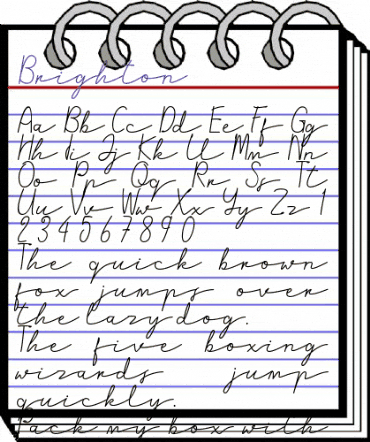 Brighton
Aa Bb Cc Dd Ee Ff Gg
Hh Ii Jj Kk Ll Mm Nn
Oo Pp Qq Rr Ss Tt
Uu Vv Ww Xx Yy Zz 1
2 3 4 5 6 7 8 9 0
The quick brown
fox jumps over
the lazy dog.
The five boxing
wizards jump
quickly.
Pack my box with